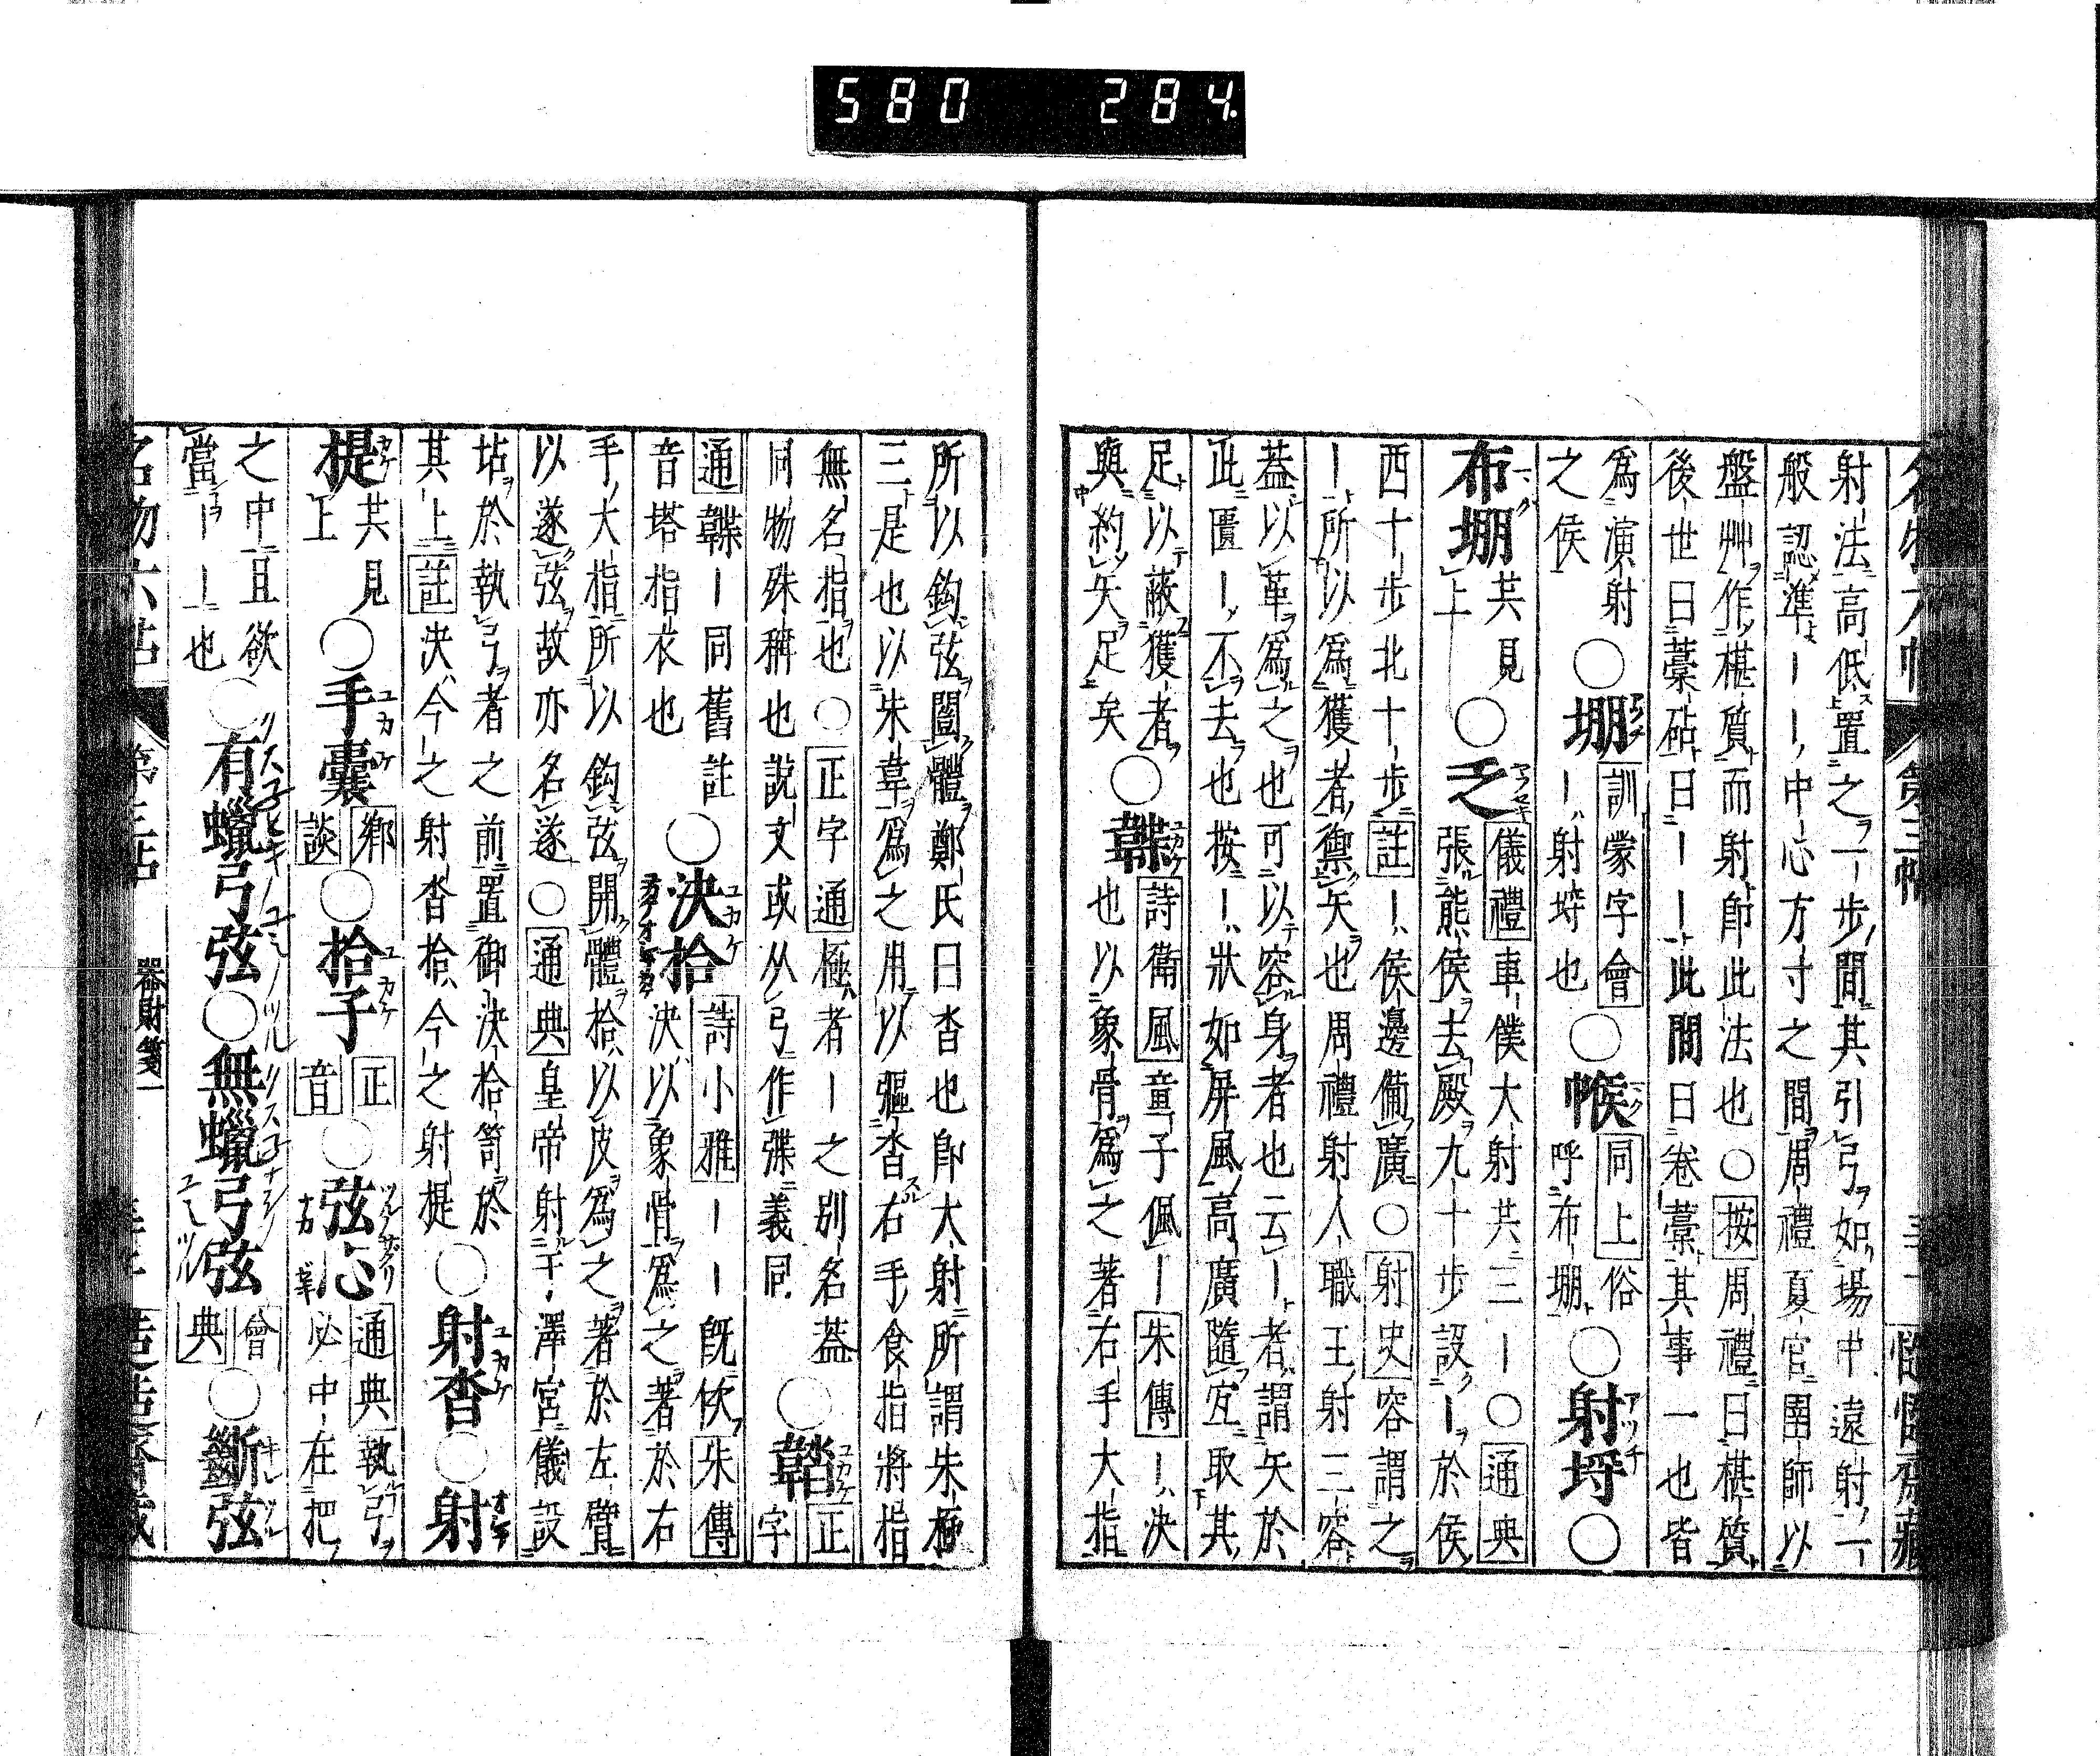 580 284.
名物六帖 第三帖
射法高低置之一步間其引弓如場中遠射一
般認準ーー中心方寸之間周禮夏官圉師以
盤艸作椹質而射即此法也○按周禮曰椹質
後世曰藁砧曰ーー此間曰卷藁其事一也皆
為演射
之侯
○堋 訓蒙字會
ー射垺也
○帿 同上俗
呼布堋
○射垺○
布堋 共見
上
○乏 儀禮車僕大射共三ー○通典
張熊侯去殿九十步設ー於侯
西十步北十步註ー侯邊禦廣○射史容謂之
ー所以為獲者禦矢也周禮射人職王射三容
蓋以革為之也可以容身者也云ー者謂矢於
此匱ー不去也按ー狀如屏風高廣隨宜取其
足以蔽獲者
與約矢足矣
○韘 詩衛風童子佩ー朱傳ー決
也以象骨為之著右手大指
所以鈎弦闓體鄭氏曰沓也即大射所謂朱極
三是也以朱韋為之用以彄沓右手食指將指
無名指也○正字通極者ー之別名蓋
同物殊稱也說文或从弓作弽義同
○韜 正字
通韘ー同舊註
音塔指衣也
○決拾 詩小雅ーー既佽朱傳
決以象骨為之著於右
手大指所以鈎弦開體拾以皮為之著於左臂
以遂弦故亦名遂○通典皇帝射于澤宮儀設
坫於執弓者之前置御決拾笥於
其上註決今之射沓拾今之射緹
○射沓○射
緹 共見
上
○手囊 鄉談
○拾子 正音
○弦心 通典執弓
必中在把
之中且欲
當ーー也
○有蠟弓弦○無蠟弓弦 會典
○斷弦
器財箋一